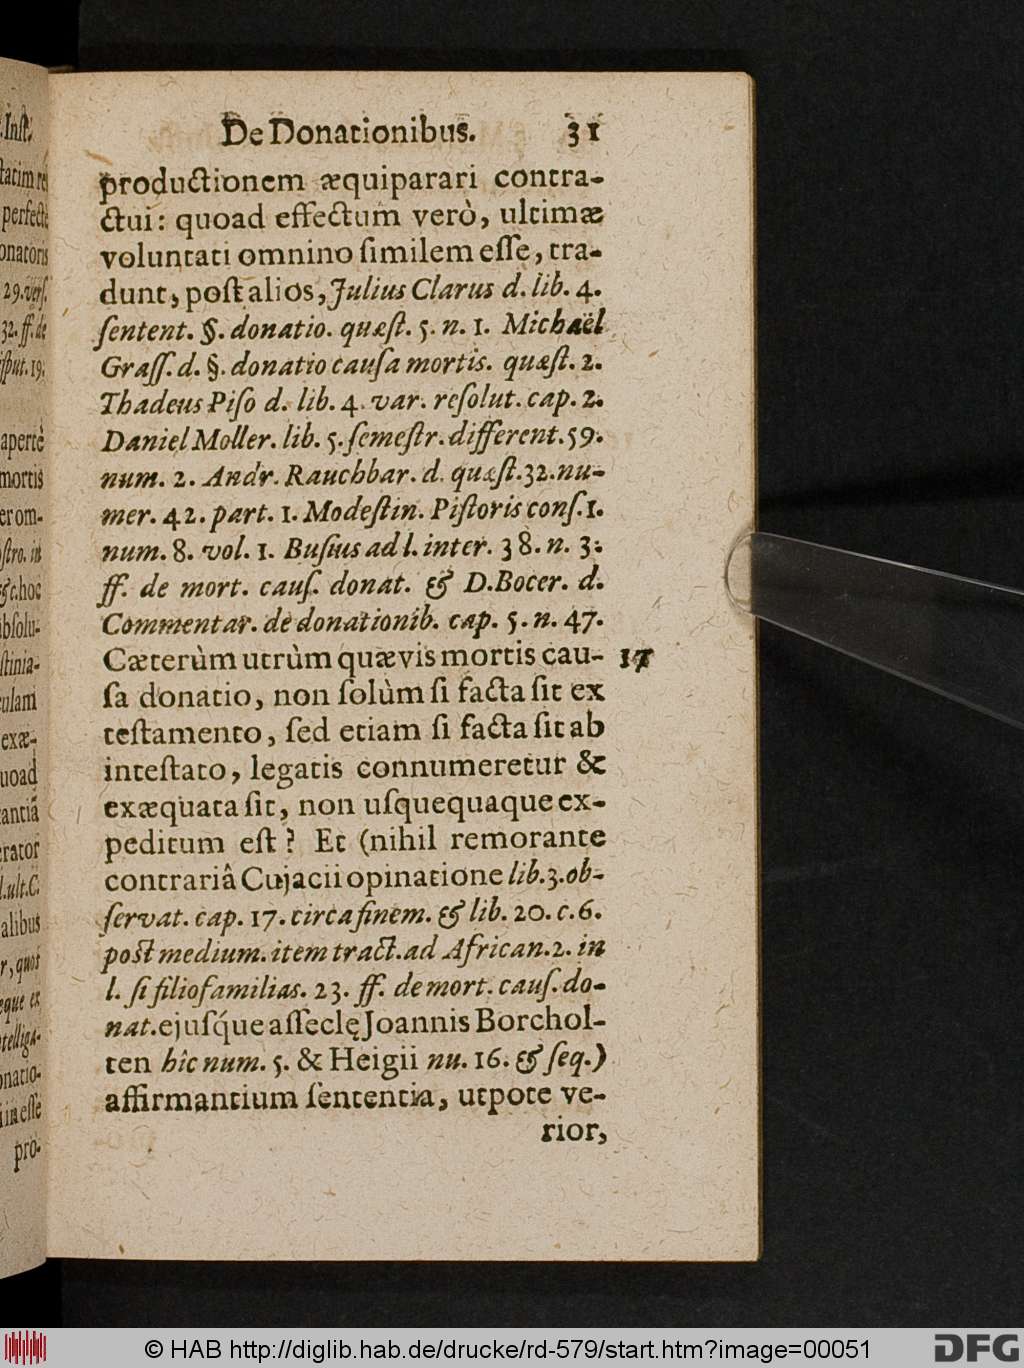 De Donationibus. 31
productionem æquiparari contra-
ctui: quoad effectum verò, ultimæ
voluntati omnino ſimilem eſſe, tra-
dunt, poſt alios, Julius Clarus d. lib. 4.
ſentent. §. donatio. quæſt. 5. n. 1. Michaël
Graſſ. d. §. donatio cauſa mortis. quæſt. 2.
Thadeus Piſo d. lib. 4. var. reſolut. cap. 2.
Daniel Moller. lib. 5. ſemeſtr. different. 59.
num. 2. Andr. Rauchbar. d. quæſt. 32. nu-
mer. 42. part. 1. Modeſtin. Piſtoris conſ. 1.
num. 8. vol. 1. Buſius ad l. inter. 38. n. 3.
ff. de mort. cauſ. donat. & D. Bocer. d.
Commentar. de donationib. cap. 5. n. 47.
Cæterùm utrùm quævis mortis cau- 17
ſa donatio, non ſolùm ſi facta ſit ex
teſtamento, ſed etiam ſi facta ſit ab
inteſtato, legatis connumeretur &
exæquata ſit, non uſquequaque ex-
peditum eſt? Et (nihil remorante
contrariâ Cujacii opinatione lib. 3. ob-
ſervat. cap. 17. circa finem. & lib. 20. c. 6.
poſt medium. item tract. ad African. 2. in
l. ſi filiofamilias. 23. ff. de mort. cauſ. do-
nat. ejuſq́ue aſſeclę Joannis Borchol-
ten hîc num. 5. & Heigii nu. 16. & ſeq.)
affirmantium ſententia, utpote ve-
rior,
© HAB http://diglib.hab.de/drucke/rd-579/start.htm?image=00051
DFG